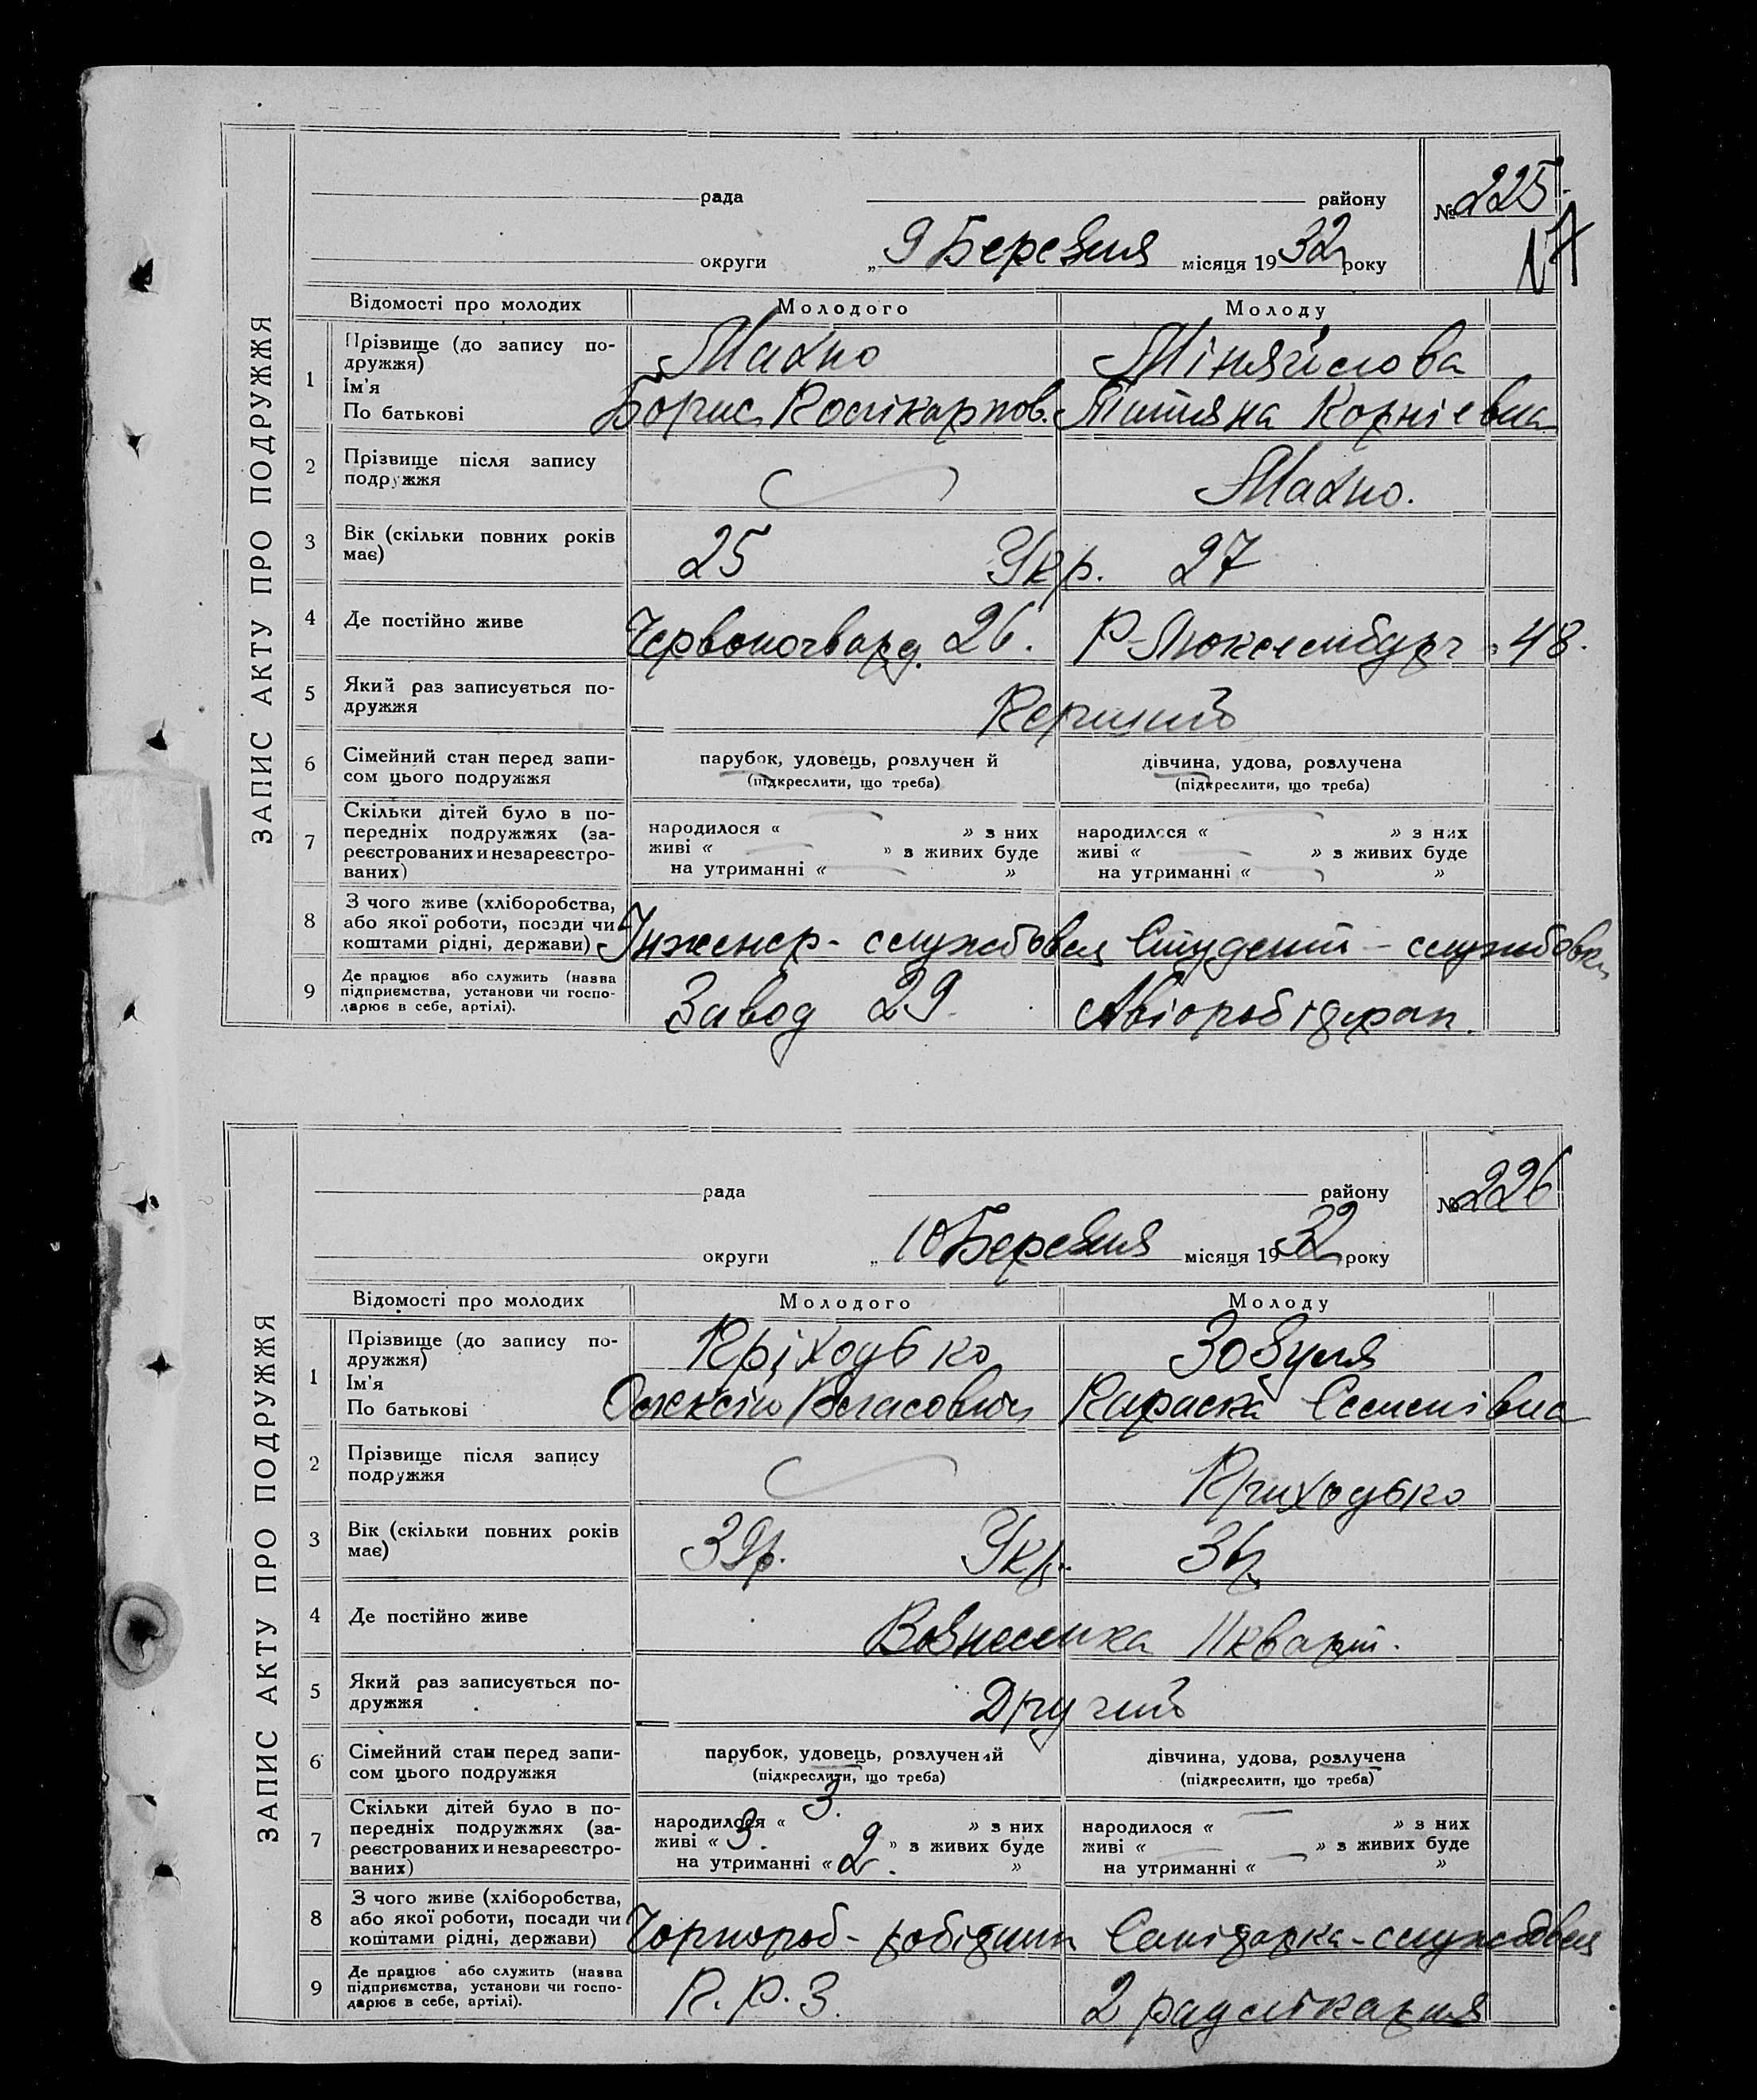 ЗАПИС АКТУ ПРО ПОДРУЖЖЯ
рада району № 225
округи „ 9 Березня місяця 1932 року
Відомості про молодих Молодого Молоду
1 Прізвище (до запису по- Махно Міняйлова
дружжя)
Ім'я
По батькові Борис Полікарпов. Титяна Корніевна
2 Прізвище після запису Махно.
подружжя
3 Вік (скільки повних років 25 Укр. 27
має)
4 Де постійно живе Червоногвард. 26. Р-Люксембург 48.
5 Який раз записується по- Перший
дружжя
6 Сімейний стан перед запи- парубок, удовець, розлучен й дівчина, удова, розлучена
сом цього подружжя (підкреслити, що треба) (підкреслити, що треба)
7 Скільки дітей було в по-
передніх подружжях (за- народилося « » з них народилося « » з них
реєстрованих и незареєстро- живі « » з живих буде живі « » з живих буде
ваних) на утриманні « » на утриманні « »
8 З чого живе (хліборобства,
або якої роботи, посади чи
коштами рідні, держави) Инженер - службовец Студент - службовец
9 Де працює або служить (назва Завод 29 Авіоробідфак.
підприємства, установи чи госпо-
дарює в себе, артілі).
ЗАПИС АКТУ ПРО ПОДРУЖЖЯ
рада району № 226
округи „ 10 Березня місяця 1932 року
Відомості про молодих Молодого Молоду
1 Прізвище (до запису по- Пріходько Зозуля
дружжя)
Ім'я
По батькові Олексій Власович Параска Семенівна
2 Прізвище після запису Приходько
подружжя
3 Вік (скільки повних років 39р. Укр. 36р
має)
4 Де постійно живе Вознесенка 11 кварт.
5 Який раз записується по- Другий
дружжя
6 Сімейний стан перед запи- парубок, удовець, розлучений дівчина, удова, розлучена
сом цього подружжя (підкреслити, що треба) (підкреслити, що треба)
7 Скільки дітей було в по- 3.
передніх подружжях (за- народилося « » з них народилося « » з них
реєстрованих и незареєстро- живі « 3. » з живих буде живі « » з живих буде
ваних) на утриманні « 2. » на утриманні « »
8 З чого живе (хліборобства,
або якої роботи, посади чи
коштами рідні, держави) Чорнороб - робідник Санідарка - службовец
9 Де працює або служить (назва П. Р. З. 2 рад лікарня
підприємства, установи чи госпо-
дарює в себе, артілі).